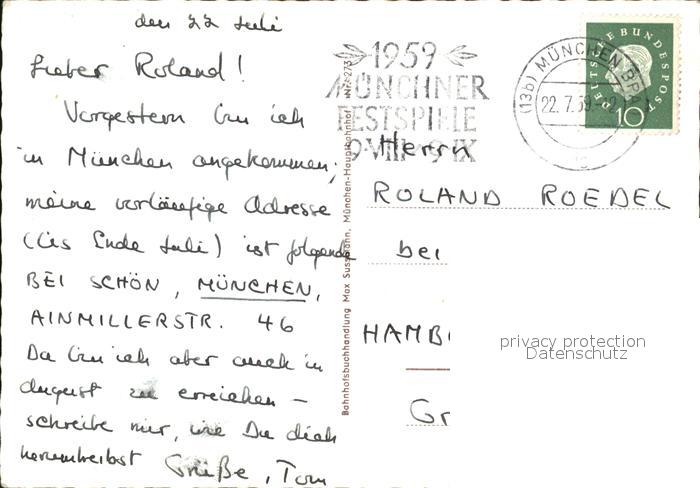 den 22 Juli
Lieber Roland!
Vorgestern bin ich
in München angekommen;
meine vorläufige Adresse
(bis Ende Juli) ist folgende
BEI SCHÖN, MÜNCHEN,
AINMILLERSTR. 46
Da bin ich aber auch im
August zu erreichen –
schreibe mir, wie Du dich
herumtreibst Grüße, Tom
Bahnhofsbuchhandlung Max Sussmann, München-Hauptbahnhof
1959
MÜNCHNER
FESTSPIELE
9.VIII-9.IX
(13b) MÜNCHEN
22.7.59
DEUTSCHE BUNDESPOST
10
Herrn
ROLAND ROEDEL
bei
HAMB
Gr
privacy protection
Datenschutz